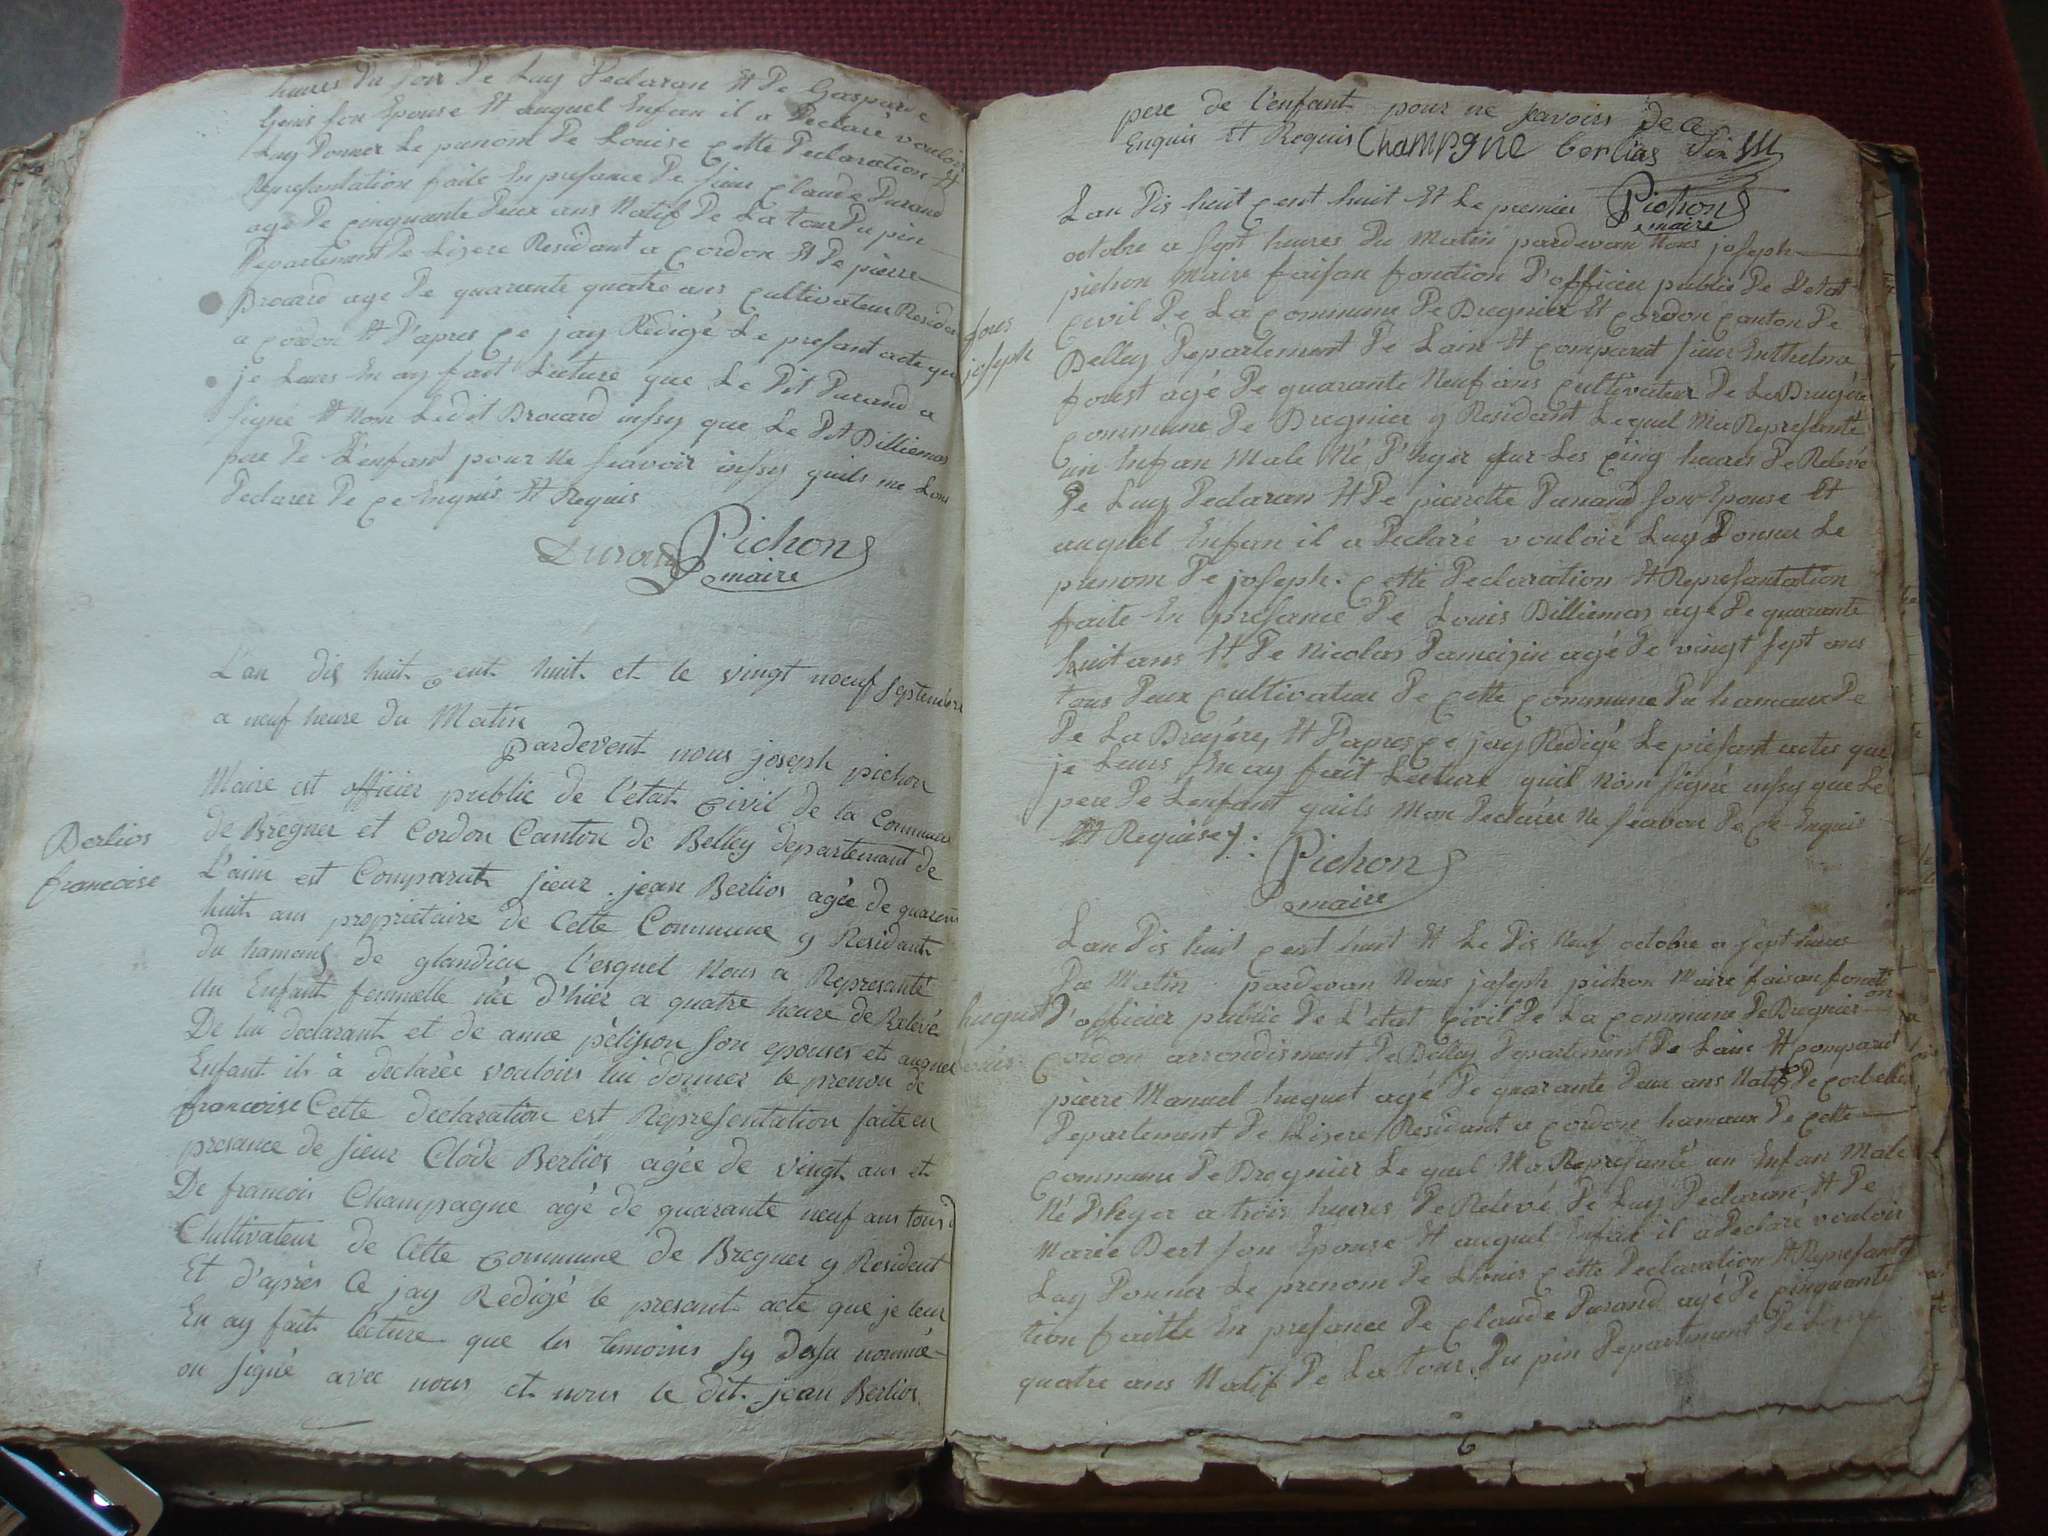 heures du soir De Luy Declaran Et De Gaspard
Genis son Epouse Et auquel Enfan il a Declaré vouloir
Luy Donner Le prenom De Louise cette Declaration Et
Represantation faite En presance De sieur claude Durand
agé De cinquante Deux ans Natif De La tour Du pin
Departement De Lizere Residant a cordon Et De pierre
Brocard age De quarante quatre ans cultivateur Resida
a cordon Et D'apres ce jay Rédigé Le presant acte que
je Leurs En ay fait Lecture que Le Dit Durand a
signé Et Non Ledit Brocard inssy que Le Dit Billiemas
pere De L'enfant pour Ne scavoir inssy quils me Lon
Declarer De ce Enquis Et Requis
Durand Pichon
maire
L'an dix huit cent huit et le vingt noeuf septembre
a neuf heure du Matin
pardevent nous joseph pichon
Maire est officier public de l'etat civil de la Commune
de Bregner et Cordon Canton de Belley departemant de
L'ain est Comparut sieur jean Berlios agée de quarente
huit ans proprietaire de Cette Commune y Residant
du hamaux de glandieu l'esquel nous a Represanté
un Enfant femmelle née d'hier a quatre heure de Relevé
De lui declarant et de anne pélisson son epouses et auquel
Enfant il à declarée vouloir lui donner le prenon de
francoise Cette declaration est Representation faite en
presance de sieur Clode Berlios agée de vingt ans et
De francois Champagne agé de quarante neuf ans tous d
Cultivateur de Cette Commune de Bregner y Resident
Et d'apres Ce jay Redigé le presant acte que je leur
En ay fait lecture que les temoins sy desu nommé
on signé avec nous et nons le dit jean Berlios
Berlios
francoise
pere de l'enfant pour ne scavoir de ce
Enquis Et Requis Champgne berlias
Pichon
maire
Lan Dis huit cent huit Et Le premier
octobre a sept heures Du Matin pardevan Nous joseph
pichon Maire faisan fonction D'officier public De L'etat
civil De La commune De Bregnier Et cordon canton De
Belley Departement De Lain Et comparut sieur Enthelme
forest agé De quarante Neuf ans cultivateur De La Brugére
commune De Bregnier y Residant Lequel Ma Represanté
un Enfan Male Né D'hyer sur Les cinq heures De Relevé
De Luy Declaran Et De pierrette Durand son Epouse Et
auquel Enfan il a Declaré vouloir Luy Donner Le
prenom De joseph. cette Declaration Et Represantation
faite En presance De Louis Billiemas age De quarante
huit ans Et De Nicolas Damaizin agé De vingt sept ans
tous Deux cultivateur De cette commune Du hamaux De
De La Brugére, Et D'apres ce jay Redigé Le présant actes que
je Leurs En ay fait Lecture quil Nom signé inssy que Le
pere De Lenfant quils Mon Declarér Ne scavoir De ce Enquis
Et Requise
Pichon
maire
joseph
Lan Dis huit cent huit Et Le Dis Neuf octobre a sept heures
Du Matin pardevan Nous joseph pichon Maire faisan foncti
on
D'officier public De L'etat civil De La commune De Bregnier
cordon arrondisment De Belley Departement De Lain Et comparut
pierre Manuel huguet agé De quarante Deux ans Natif De corbelin
Departement De Lizere Residant a cordon hamaux De cette
commune De Bregnier Le quel Ma Represanté un Enfan Male
Né D'hyer a trois heures De Relevé De Luy Declaran Et De
Marie Bert son Epouse Et auquel Enfan il a Declaré vouloir
Luy Donner Le prenom De Louis cette Declaration Et Represanta
tion faitte En presance De claude Durand agé De cinquante
quatre ans Natif De La tour Du pin Departement De Lizere
huguet